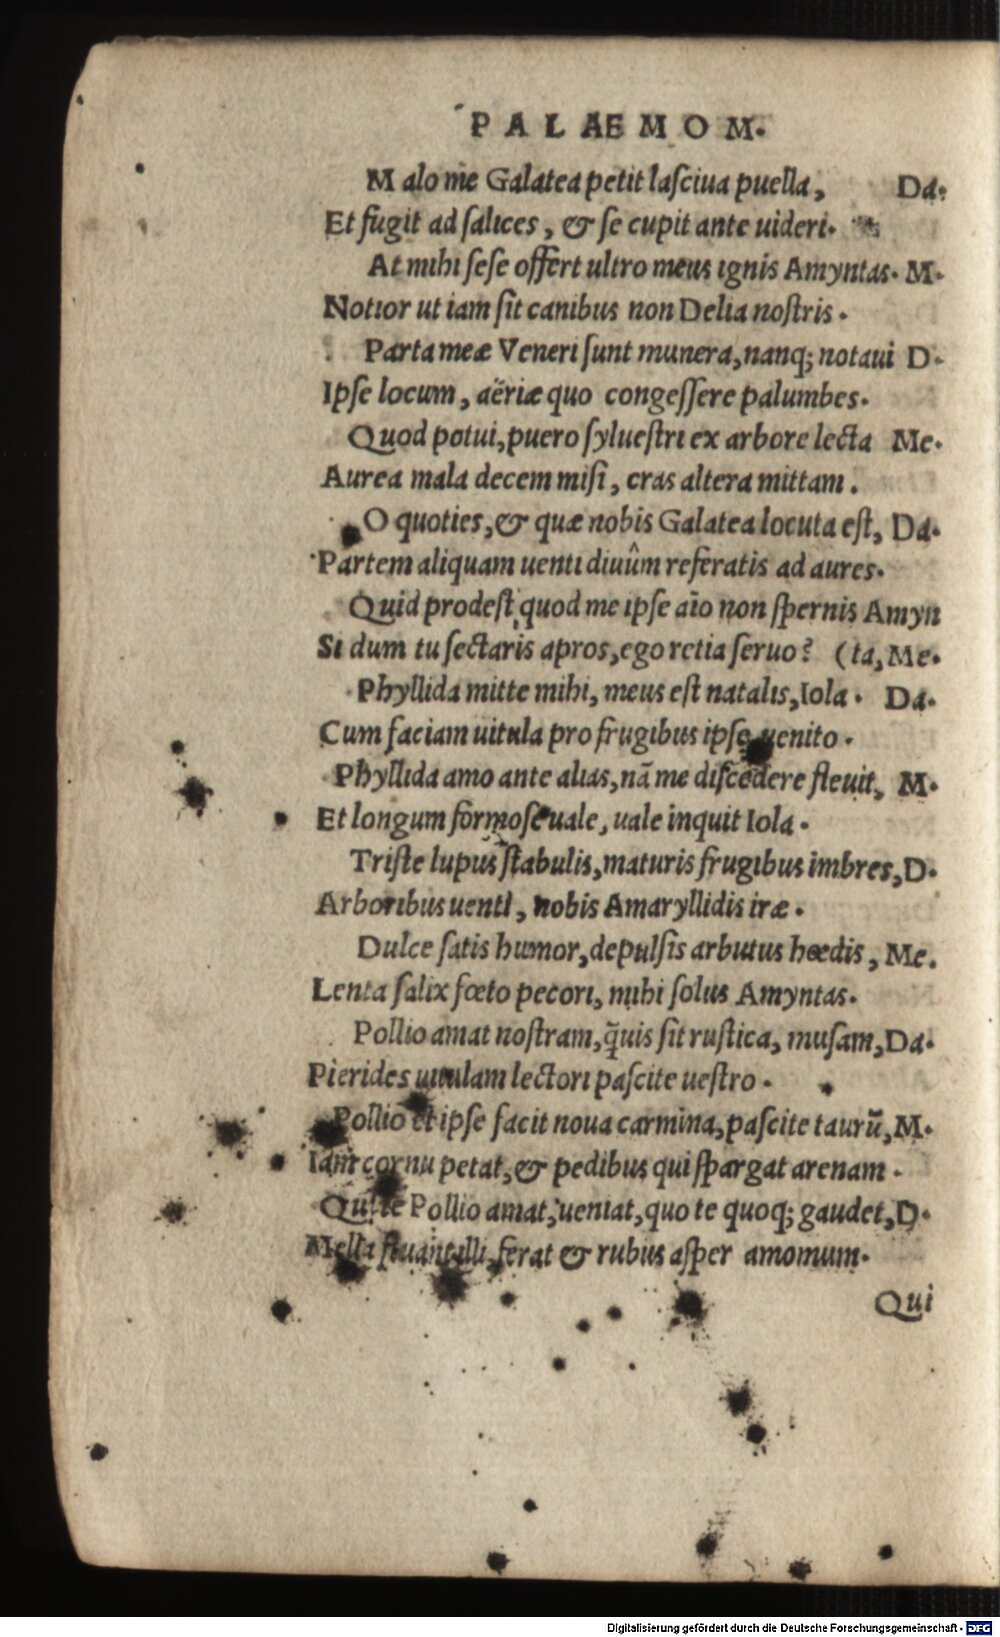 PALAEMOM.
Malo me Galatea petit laſciua puella, Da.
Et fugit ad ſalices, & ſe cupit ante uideri.
At mihi ſeſe offert ultro meus ignis Amyntas. M.
Notior ut iam ſit canibus non Delia noſtris.
Parta meæ Veneri ſunt munera, nanq; notaui D.
Ipſe locum, aëriæ quo congeſſere palumbes.
Quod potui, puero ſylueſtri ex arbore lecta Me.
Aurea mala decem miſi, cras altera mittam.
O quoties, & quæ nobis Galatea locuta eſt, Da.
Partem aliquam uenti diuûm referatis ad aures.
Quid prodeſt quod me ipſe aĩo non ſpernis Amyn
Si dum tu ſectaris apros, ego retia ſeruo? (ta, Me.
Phyllida mitte mihi, meus eſt natalis, Iola. Da.
Cum faciam uitula pro frugibus ipſe uenito.
Phyllida amo ante alias, nã me diſcedere fleuit, M.
Et longum formoſe uale, uale inquit Iola.
Triſte lupus ſtabulis, maturis frugibus imbres, D.
Arboribus uenti, nobis Amaryllidis iræ.
Dulce ſatis humor, depulſis arbutus hœdis, Me.
Lenta ſalix fœto pecori, mihi ſolus Amyntas.
Pollio amat noſtram, q̃uis ſit ruſtica, muſam, Da.
Pierides uitulam lectori paſcite ueſtro.
Pollio et ipſe facit noua carmina, paſcite taurũ, M.
Iam cornu petat, & pedibus qui ſpargat arenam.
Qui te Pollio amat, ueniat, quo te quoq; gaudet, D.
Mella fluant illi, ferat & rubus aſper amomum.
Qui
Digitalisierung gefördert durch die Deutsche Forschungsgemeinschaft - DFG